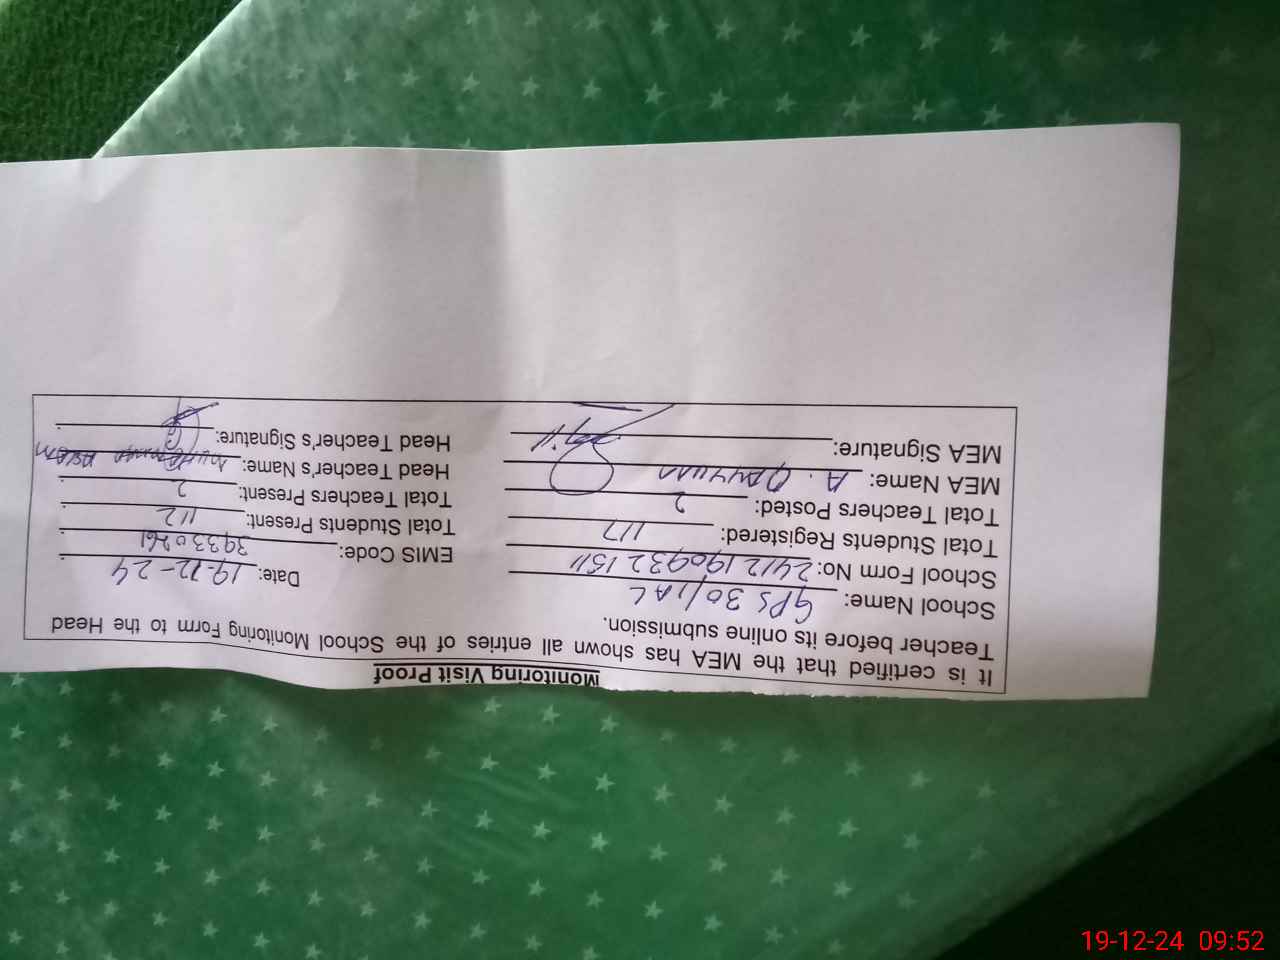 Monitoring Visit Proof
It is certified that the MEA has shown all entries of the School Monitoring Form to the Head
Teacher before its online submission.
School Name: GPS 30/1AL Date: 19-12-24
School Form No: 2412190932 1511 EMIS Code: 39330261
Total Students Registered: 117 Total Students Present: 112
Total Teachers Posted: 2 Total Teachers Present: 2
MEA Name: A. Head Teacher's Name: Muhammad Aslam
MEA Signature: Head Teacher's Signature:
19-12-24 09:52